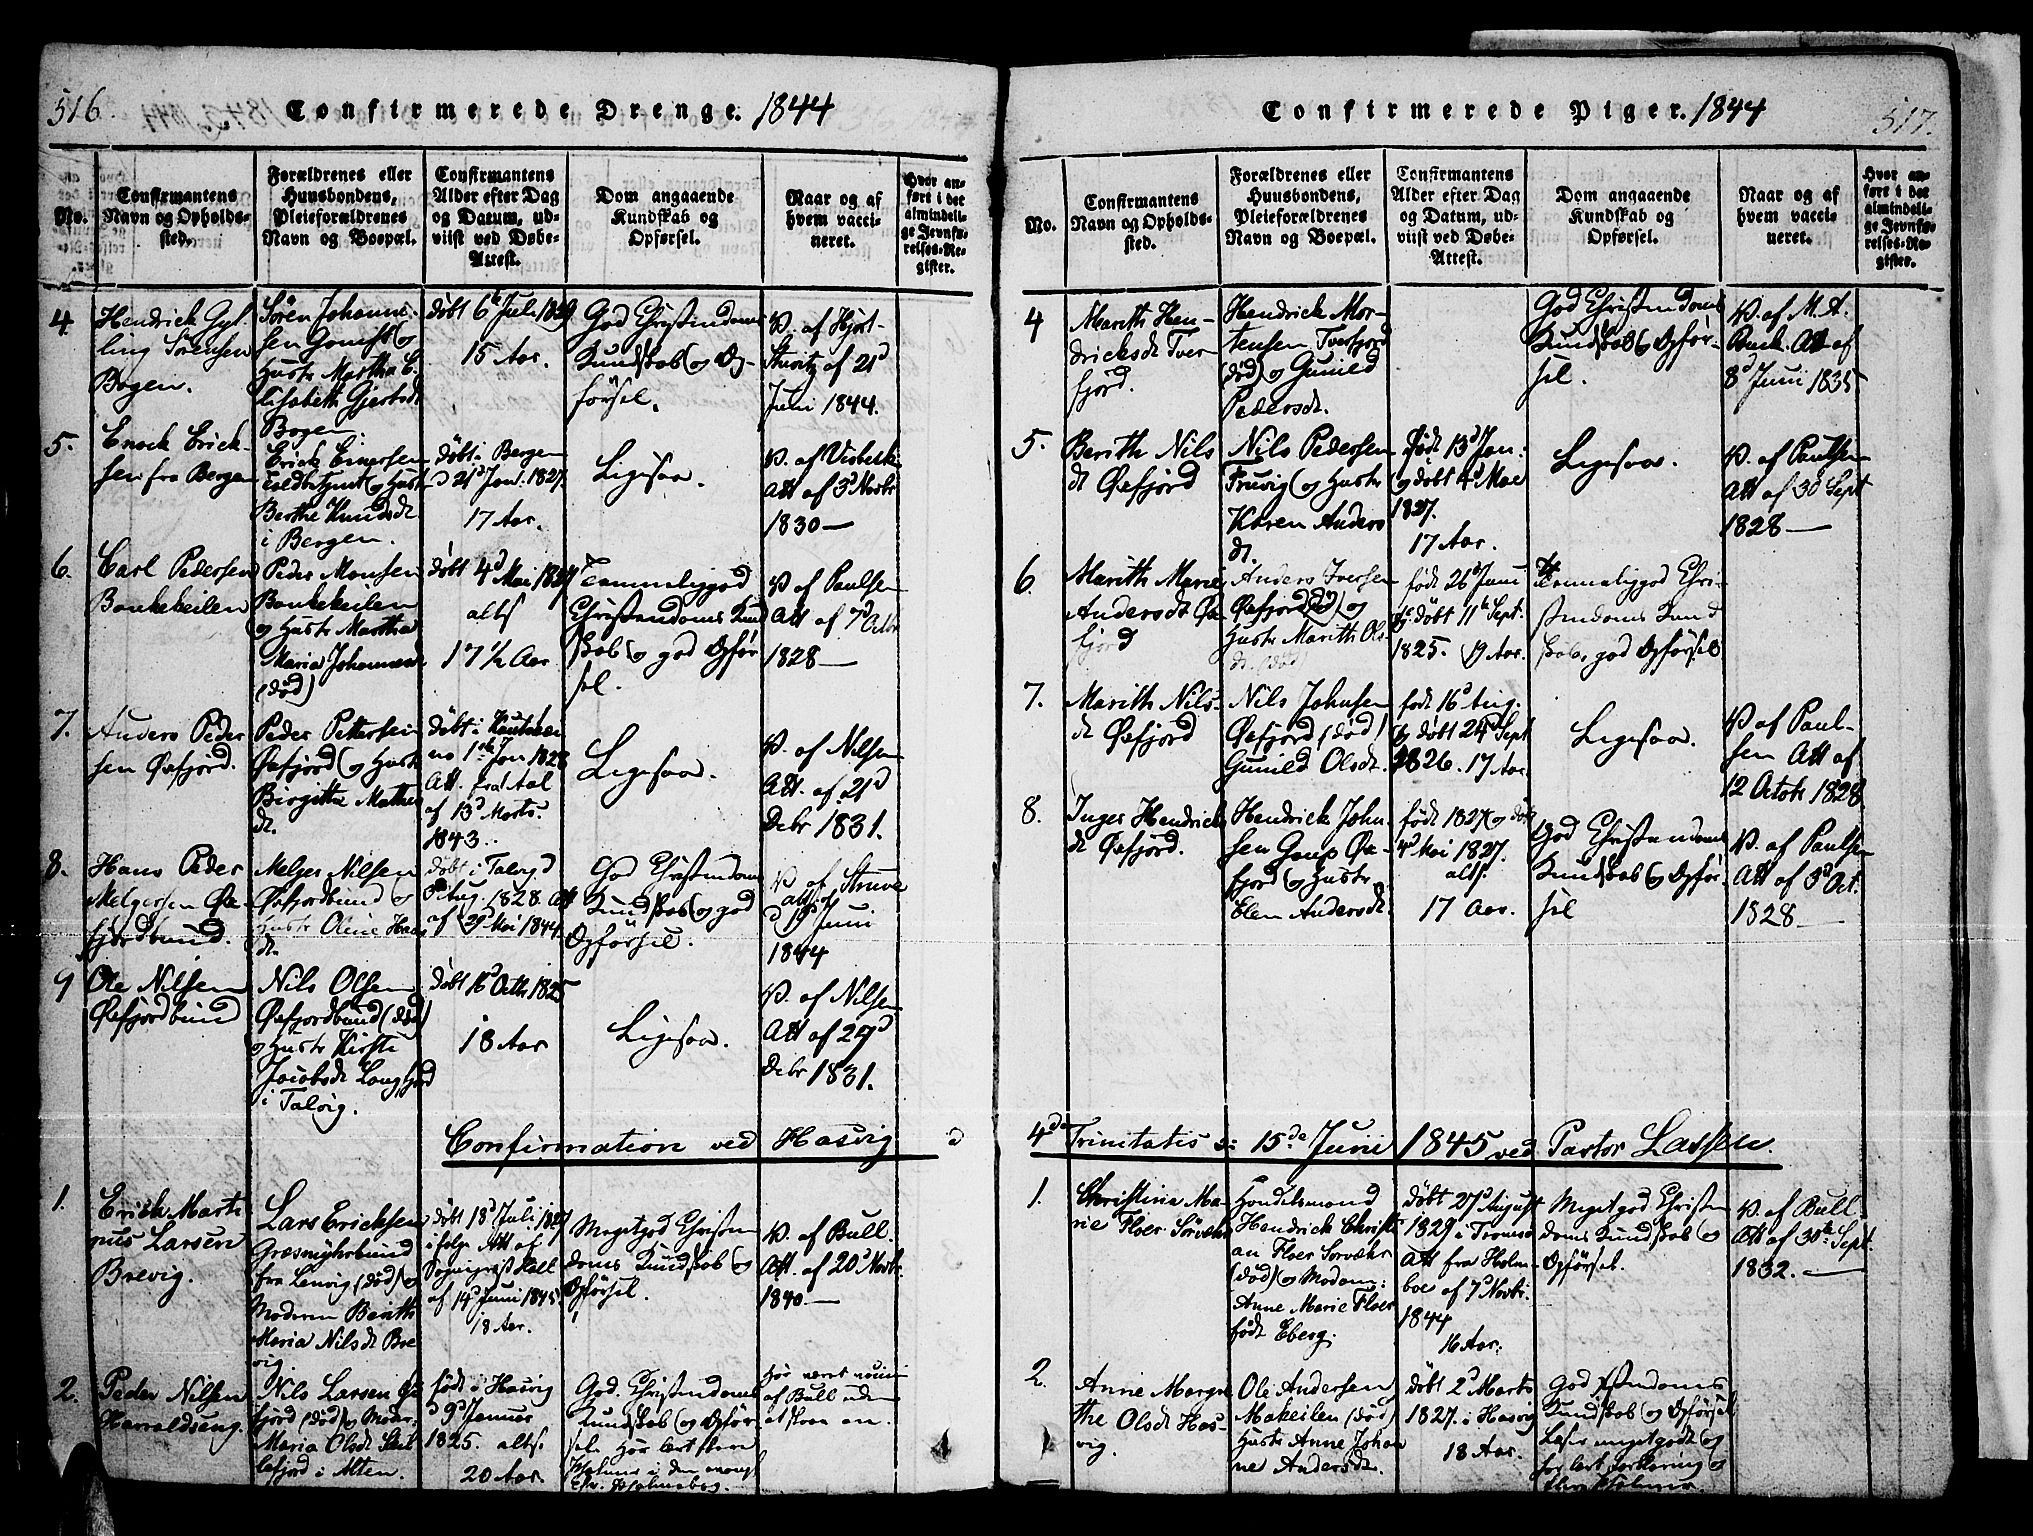 516.
Confirmerede Drenge. 1844
No.
Confirmantens
Navn og Opholds-
sted.
Forældrenes eller
Huusbondens,
Pleieforældrenes
Navn og Boepæl.
Confirmantens
Alder efter Dag
og Datum, ud-
viist ved Døbe-
Attest.
Dom angaaende
Kundskab og
Opførsel.
Naar og af
hvem vacci-
neret.
Hvor an-
ført i det
almindeli-
ge Jevnfø-
relses-Re-
gister.
4
Hendrick Gyl-
ling Sörensen
Bogen.
Sören Johanne-
sen og
Hustr Martha E-
lisabeth
Bogen
döbt 6te Juli 1829
15 Aar.
God Christendoms
Kundskab og Op-
försel.
V. af Hjort-
af 21d
Juni 1844.
5.
Enock Erick-
sen fra Bergen
Erick Einersen
og Hustr
Berthe Knudsdt
i Bergen.
döbt i Bergen
d 21d Jan: 1827.
17 Aar.
Ligesaa.
V. af
Att af 3d Novbr
1830 —
6.
Carl Pedersen
Bankekeilen
Peder Monsen
Bankekeilen
og Hustr Martha
Maria
(död)
döbt 4d Mai 1827
altsi
17 1/2 Aar.
Temmeliggod
Christendoms Kund
skab og god Opför
sel.
V. af Paulsen
Att af 7d Octbr
1828 —
7.
Anders Peder
sen Öxfjord.
Peder Pettersen
Öxfjord og Hustr
Birgitta Mathis
dt.
döbt i Kautokei
no 1ste Jan 1828
Att. fra Aal
af 13d Marts.
1843..
Ligesaa.
V. af Nilsen
Att. af 21d
Debr 1831.
8.
Hans Peder
Melgersen Öx-
fjordbund.
Melger Nilsen
Öxfjordbund og
Hustr Oline Hans
dt.
döbt i Talvig d
Aug. 1828. Att
af 29d Mai 1844.
God Christendoms
Kundskab og god
Opförsel.
V. af Struve
Juni
1844
9
Ole Nilsen
Öxfjordbund
Nils Olsen
Öxfjordbund (död)
og Hustr Kirsti
Jacobsdt Langfjord
i Talvig.
döbt 16d Octb 1825
18 Aar
Ligesaa.
V. af Nilsen
Att af 27d
Debr 1831.
Confirmation ved Hasvig
1.
Erick Marti
nus Larsen
Brevig.
Lars Ericksen
Græsmyhrbund
fra Lenvig (död) og
Moderen Berith
Maria Nilsdt Bre
vig.
döbt 18d Juli 1827
ifölge Att af
Sognepræst Hall
af 14d Juni 1845
18 Aar.
Megetgod Christen
doms Kundskab og
Opförsel.
V. af Bull.
Att. af 20d Novbr.
1840. —
2.
Peder Nilsen
Harraldseng.
Nils Larsen Öx
fjord (död) og Moder
Maria Olsdt
i Alten.
födt i Hasvig
d 9d Januar
1825. altsi
20 Aar.
God. Christendoms
Kundskab og Opför
sel. har lært
i den
har været
af Bull uden
at slaae an.
517.
Confirmerede Piger. 1844
No.
Confirmantens
Navn og Opholds-
sted.
Forældrenes eller
Huusbondens,
Pleieforældrenes
Navn og Boepæl.
Confirmantens
Alder efter Dag
og Datum, ud-
viist ved Døbe-
Attest.
Dom angaaende
Kundskab og
Opførsel.
Naar og af
hvem vacci-
neret.
Hvor an-
ført i det
almindeli-
ge Jevnfø-
relses-Re-
gister.
4
Marith Hen-
dricksdt Tver
fjord.
Hendrick Mor-
tensen Tverfjord
(död) og Gunild
Pedersdt.
God Christendoms
Kundskab og Opför-
sel.
V. af M. A.
Buck. Att af
8d Juni 1835
5.
Berith Nils
dt Öxfjord
Nils Pedersen
Fruvig og Hustr
Karen Anders
dt.
födt 13d Jan:
og döbt 4d Mai
1827.
17 Aar.
Ligesaa.
V. af Paulsen
Att af 30d Sept
1828 —
6.
Marith Marie
Andersdt Öx
fjord
Anders Iversen
Öxfjord (död) og
Hustr Marith Ols
dt. (död)
födt 26d Juni
og döbt 11te Sept.
1825. 19 Aar.
Temmeliggod Chri-
stendoms Kund
skab, god Opförsel
7.
Marith Nils-
dt Öxfjord
Nils Johnsen
Öxfjord (död)
Gunild Olsdt.
födt 16d Aug.
og döbt 24d Sept
1826. 17 Aar
Ligesaa.
V. af Paul-
sen Att af
12 Octob 1828
8.
Inger Hendricks
dt Öxfjord.
Hendrick John-
sen Gaup Öx-
fjord og Hustr
Elen Andersdt.
födt 1827 og döbt
4d Mai 1827.
altsi.
17 Aar.
God Christendoms
Kundskab og Opför-
sel
V. af Paulsen
Att af 3d Oct.
1828 —
4de Trinitatis d: 15de Juni 1845 ved Pastor Lassen.
1.
Christina Ma-
rie Floer Sörvær
Handelsmand
Hendrick Christi
an Floer Sörvær
(död) og Madam:
Anne Marie Floer
födt Eberg.
döbt 27d August
1829 i Tromsö
Att fra Holm-
boe af 7d Novbr.
1844
16 Aar.
Megetgod Christen
doms Kundskab og
Opförsel.
V. af Bull.
Att af 30te Sept.
1832. —
2.
Anne Margre
the Olsdt Has-
vig.
Ole Andersen
Makeilen (död)
Hustr Anne Johan
ne Andersdt.
döbt 2d Marts
1827. i Hasvig
18 Aar.
God Xstendoms
Kundskab og Opförsel
Læser megetgodt og
har lært Forklaring og